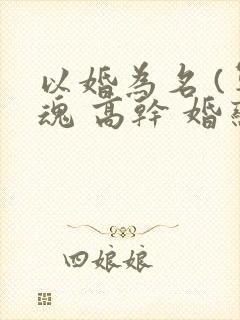 以婚為名(
魂 高幹 婚
四娘娘